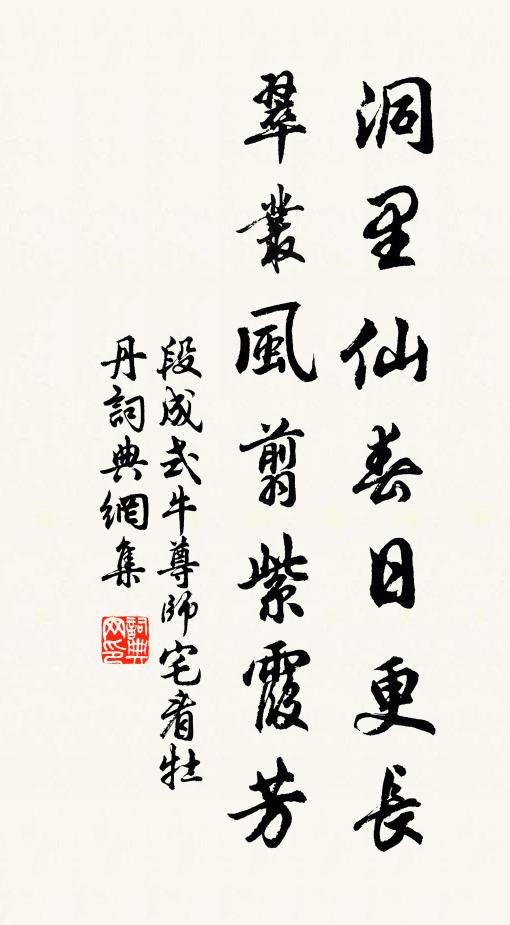 洞里仙春日更長
翠叢風翦紫霞芳
段成式牛尊師宅看牡
丹詞典網集
詞典
网印